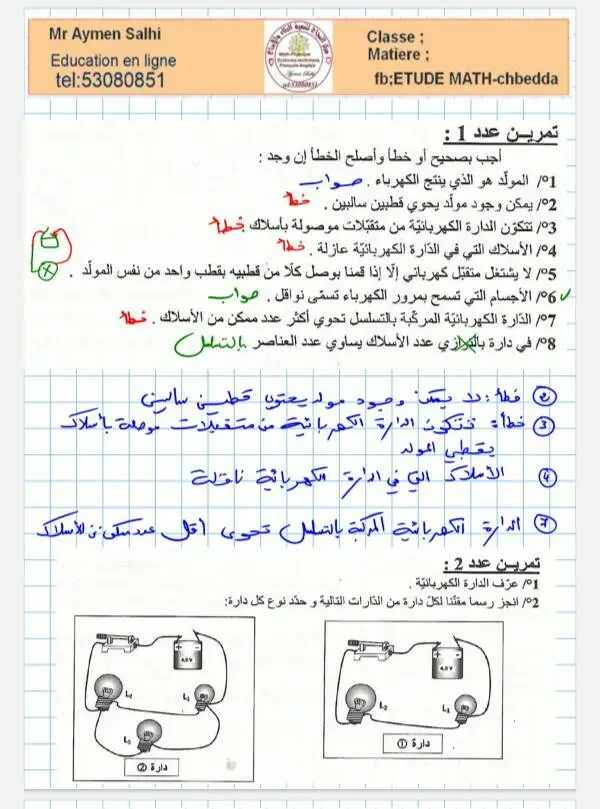 Mr Aymen Salhi
Education en ligne
tel:53080851
Classe ;
Matiere ;
fb;ETUDE MATH-chbedda
تمريـن عدد 1 :
أجب بصحيح أو خطأ وأصلح الخطأ إن وجد :
1°/ المولّد هو الذي ينتج الكهرباء . صواب
2°/ يمكن وجود مولّد يحوي قطبين سالبين . خطأ
3°/ تتكوّن الدارة الكهربائيّة من متقبّلات موصولة بأسلاك . خطأ
4°/ الأسلاك التي في الدّارة الكهربائيّة عازلة . خطأ
5°/ لا يشتغل متقبّل كهربائي إلّا إذا قمنا بوصل كلّا من قطبيه بقطب واحد من نفس المولّد .
6°/ الأجسام التي تسمح بمرور الكهرباء تسمّى نواقل . صواب
7°/ الدّارة الكهربائيّة المركّبة بالتسلسل تحوي أكثر عدد ممكن من الأسلاك . خطأ
8°/ في دارة بالتوازي عدد الأسلاك يساوي عدد العناصر بالتسلسل
② خطأ: لا يمكن وجود مولد يحتوي قطبين سالبين
③ خطأ: تتكون الدارة الكهربائية من متقبلات موصلة بأسلاك
بقطبي المولد
④ الأسلاك التي في الدارة الكهربائية ناقلة
⑦ الدارة الكهربائية المركبة بالتسلسل تحوي أقل عدد ممكن من الأسلاك
تمريـن عدد 2 :
1°/ عرّف الدارة الكهربائيّة .
2°/ انجز رسما مقنّنا لكلّ دارة من الدّارات التالية و حدّد نوع كل دارة:
4,5 V
L₂
L₁
L₃
دارة ②
4,5 V
L₂
L₁
دارة ①